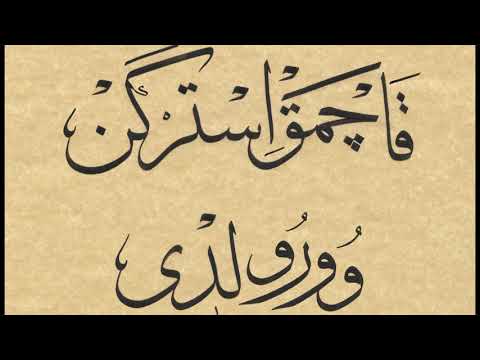 قَاچْمَقْ اِسْتَرْكَنْ
وُورُولْدِی